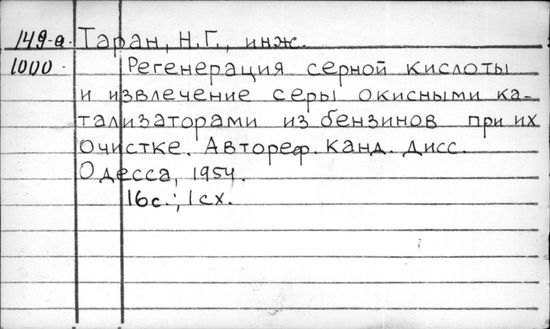 149-а. Таран, Н.Г., инж.
1000. Регенерация серной кислоты
и извлечение серы окисными ка-
тализаторами из бензинов при их
очистке. Автореф. канд. дисс.
Одесса, 1954.
16с.; 1 сх.